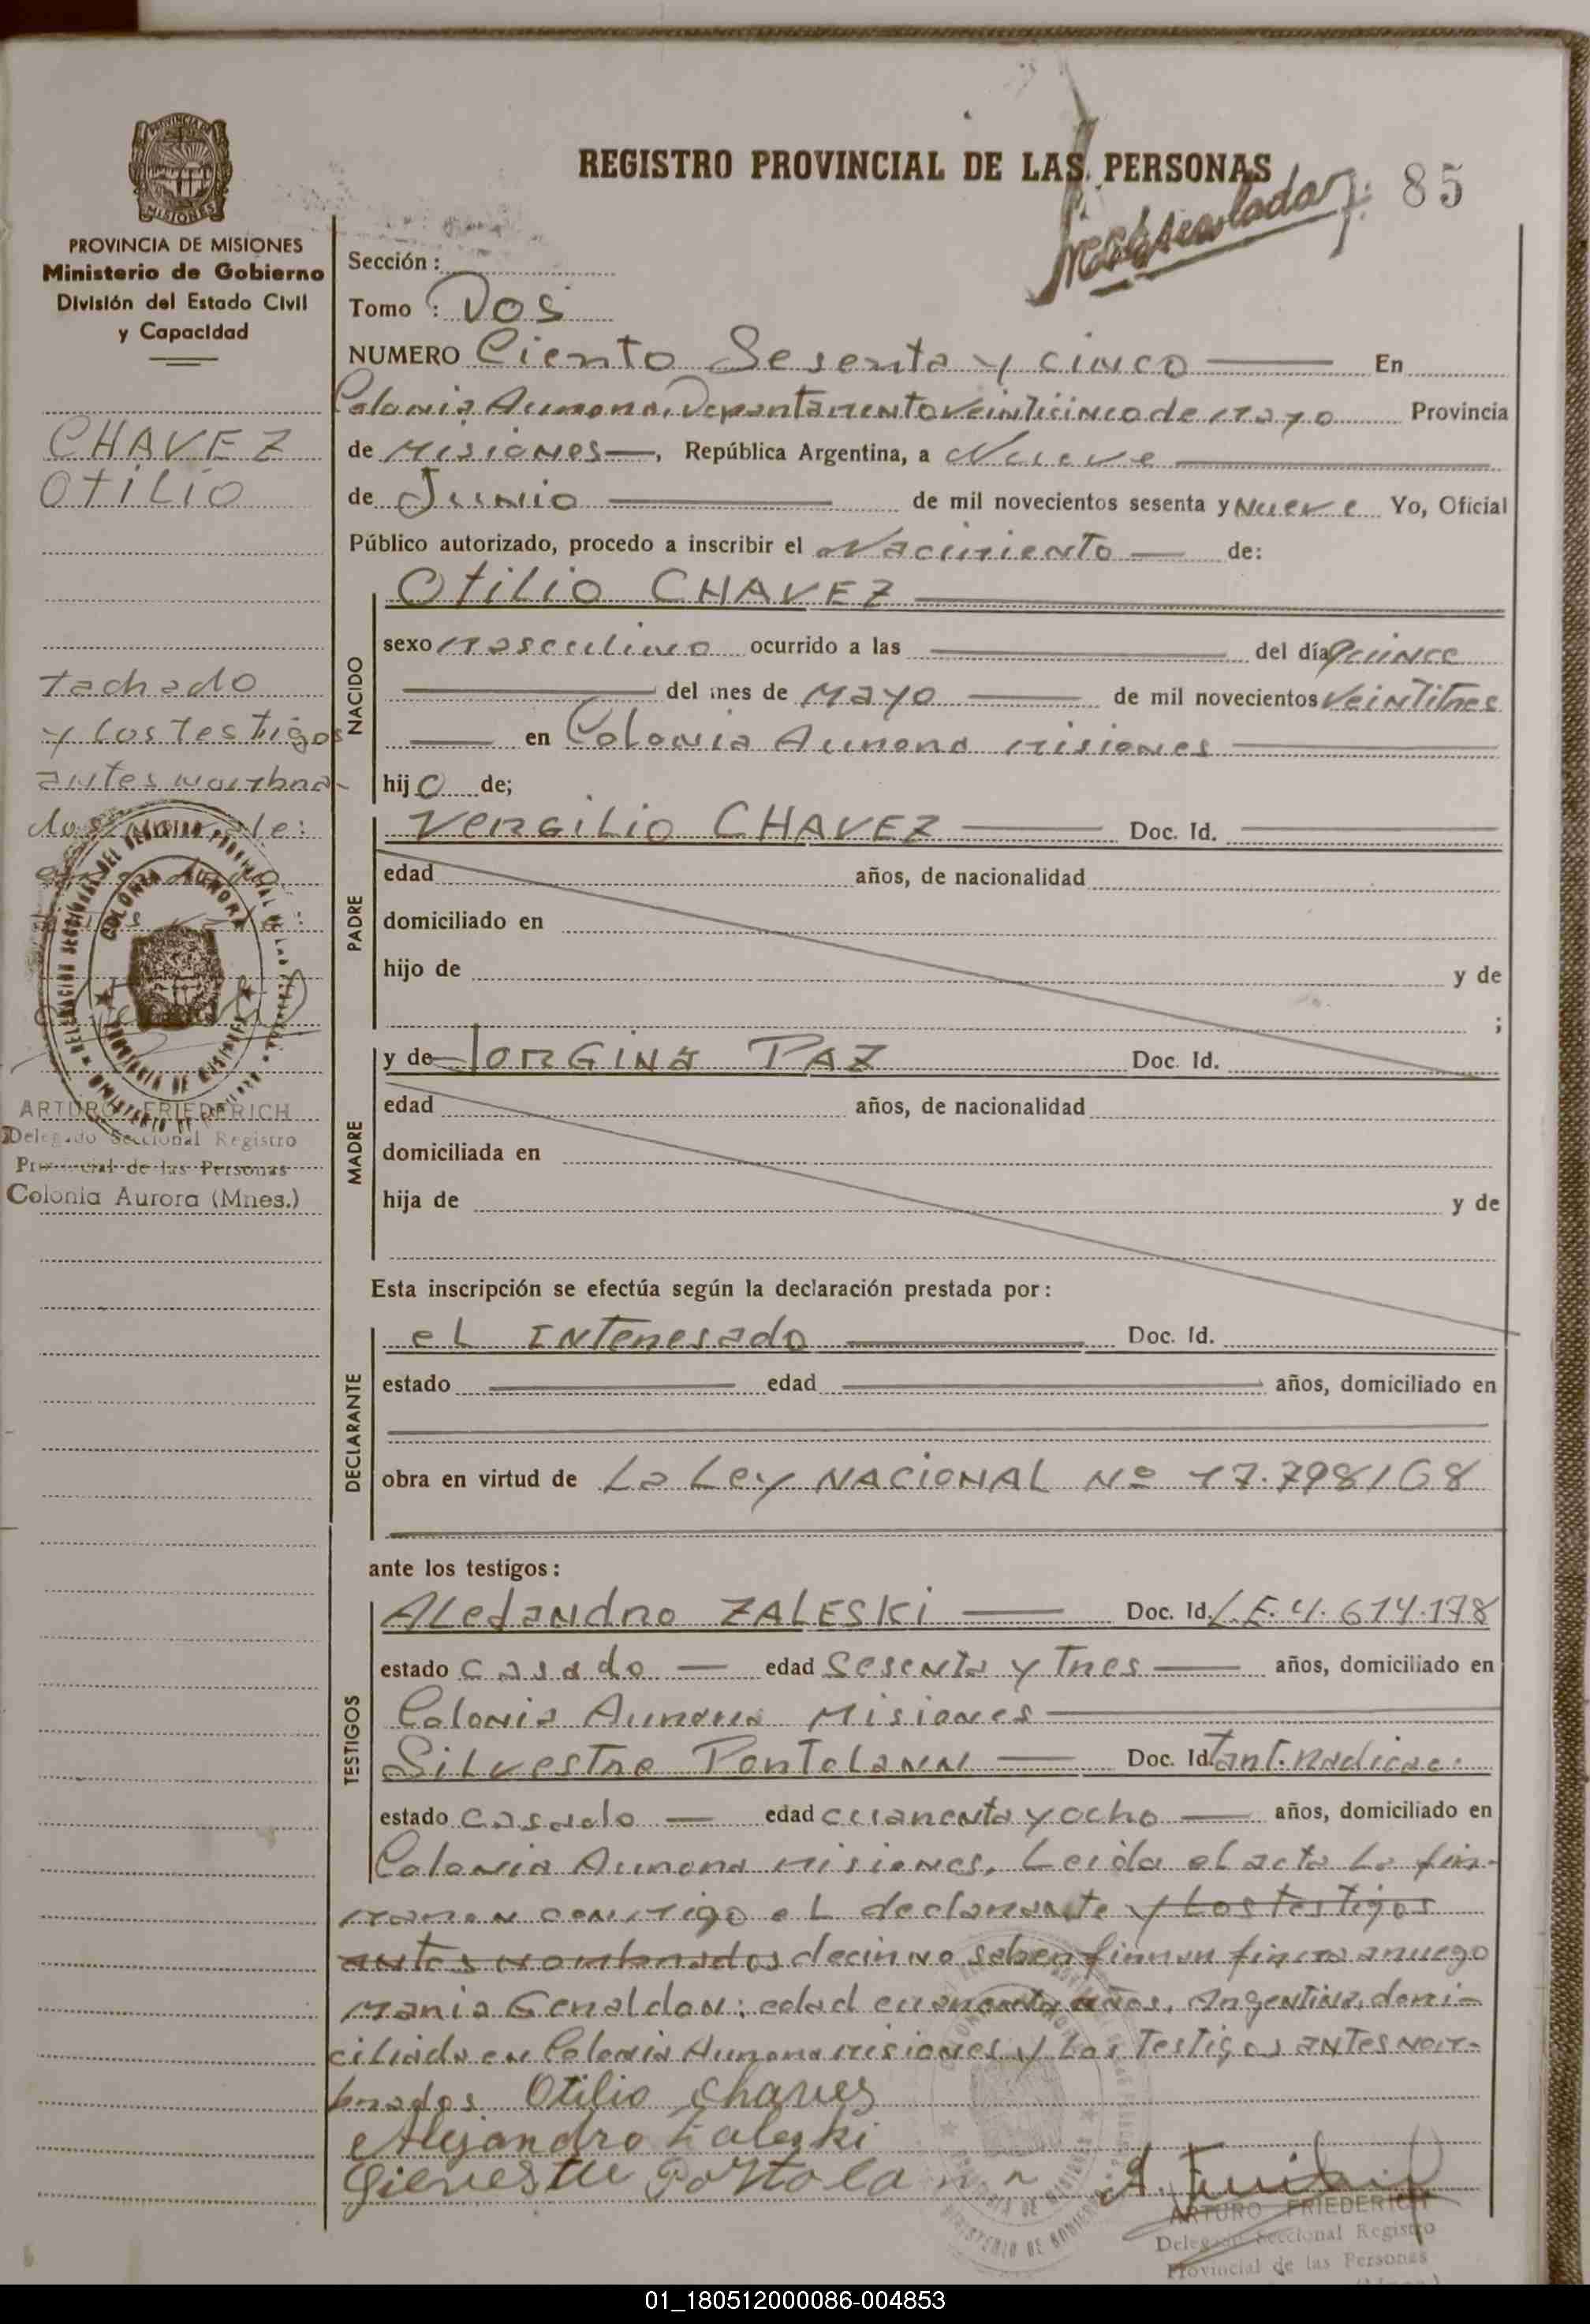 REGISTRO PROVINCIAL DE LAS PERSONAS
85
PROVINCIA DE MISIONES
Ministerio de Gobierno
División del Estado Civil
y Capacidad
CHAVEZ
OTILIO
tachado
y los testigos
antes nombra-
dos
ARTURO FRIEDERICH
Delegado Seccional Registro
Provincial de las Personas
Colonia Aurora (Mnes.)
Sección :
Tomo : Dos
NUMERO Ciento Sesenta y cinco En
Colonia Aurora, Departamento Veinticinco de Mayo Provincia
de Misiones, República Argentina, a Nueve
de Junio de mil novecientos sesenta y Nueve Yo, Oficial
Público autorizado, procedo a inscribir el Nacimiento de:
NACIDO
Otilio CHAVEZ
sexo Masculino ocurrido a las del día Quince
del mes de Mayo de mil novecientos Veintitres
en Colonia Aurora Misiones
hijo de;
PADRE
Vergilio CHAVEZ Doc. Id.
edad años, de nacionalidad
domiciliado en
hijo de y de
;
MADRE
y de Jorgina PAZ Doc. Id.
edad años, de nacionalidad
domiciliada en
hija de y de
Esta inscripción se efectúa según la declaración prestada por :
DECLARANTE
el Interesado Doc. Id.
estado edad años, domiciliado en
obra en virtud de La Ley NACIONAL Nº 17.798/68
ante los testigos :
TESTIGOS
Alejandro ZALESKI Doc. Id. L.E. 4.614.178
estado casado edad Sesenta y Tres años, domiciliado en
Colonia Aurora Misiones
Silvestre Portolann Doc. Id. Tarj. Radicac.
estado casado edad cuarenta y ocho años, domiciliado en
Colonia Aurora Misiones, Leida el acta la fir-
maron conmigo el declarante y los testigos
antes nombrados decir no saben firman firma a ruego
Maria Geraldon: edad cuarenta años, Argentina, domi-
ciliada en Colonia Aurora misiones y Los Testigos antes nom-
brados Otilio Chaves
Alejandro Zaleski
Portolann
ARTURO FRIEDERICH
Delegado Seccional Registro
Provincial de las Personas
01_180512000086-004853